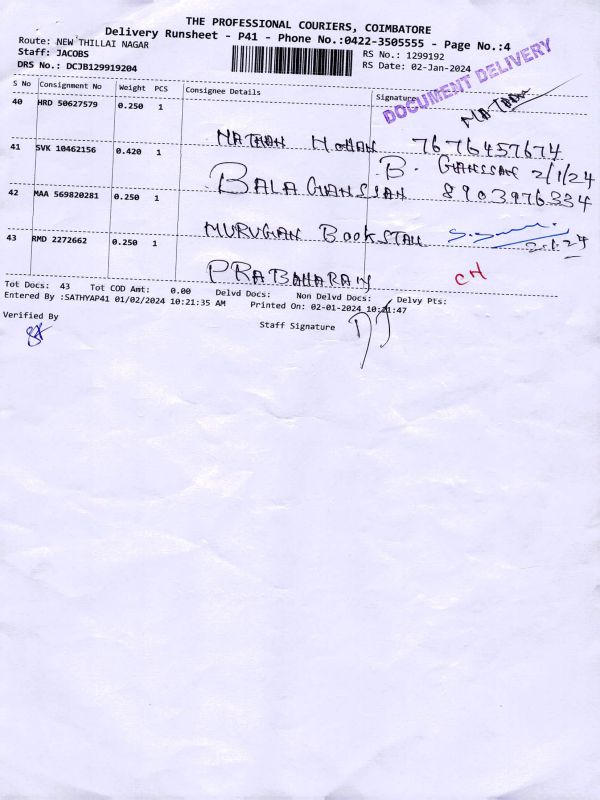 THE PROFESSIONAL COURIERS, COIMBATORE
Delivery Runsheet - P41 - Phone No.:0422-3505555 - Page No.:4
Route: NEW THILLAI NAGAR
RS No.: 1299192
Staff: JACOBS
RS Date: 02-Jan-2024
DRS No.: DCJB129919204
DOCUMENT DELIVERY
S No Consignment No Weight PCS Consignee Details Signature
40 HRD 50627579 0.250 1
NATHAN MOHAN 7676457674
41 SVK 10462156 0.420 1
B. GANESSAN 2/1/24
BALA GANESSAN 8903976334
42 MAA 569820281 0.250 1
MURUGAN Book STALL
2.1.24
43 RMD 2272662 0.250 1
PRABAHARAN CH
Tot Docs: 43 Tot COD Amt: 0.00 Delvd Docs: Non Delvd Docs: Delvy Pts:
Entered By :SATHYAP41 01/02/2024 10:21:35 AM Printed On: 02-01-2024 10:21:47
Verified By
Staff Signature